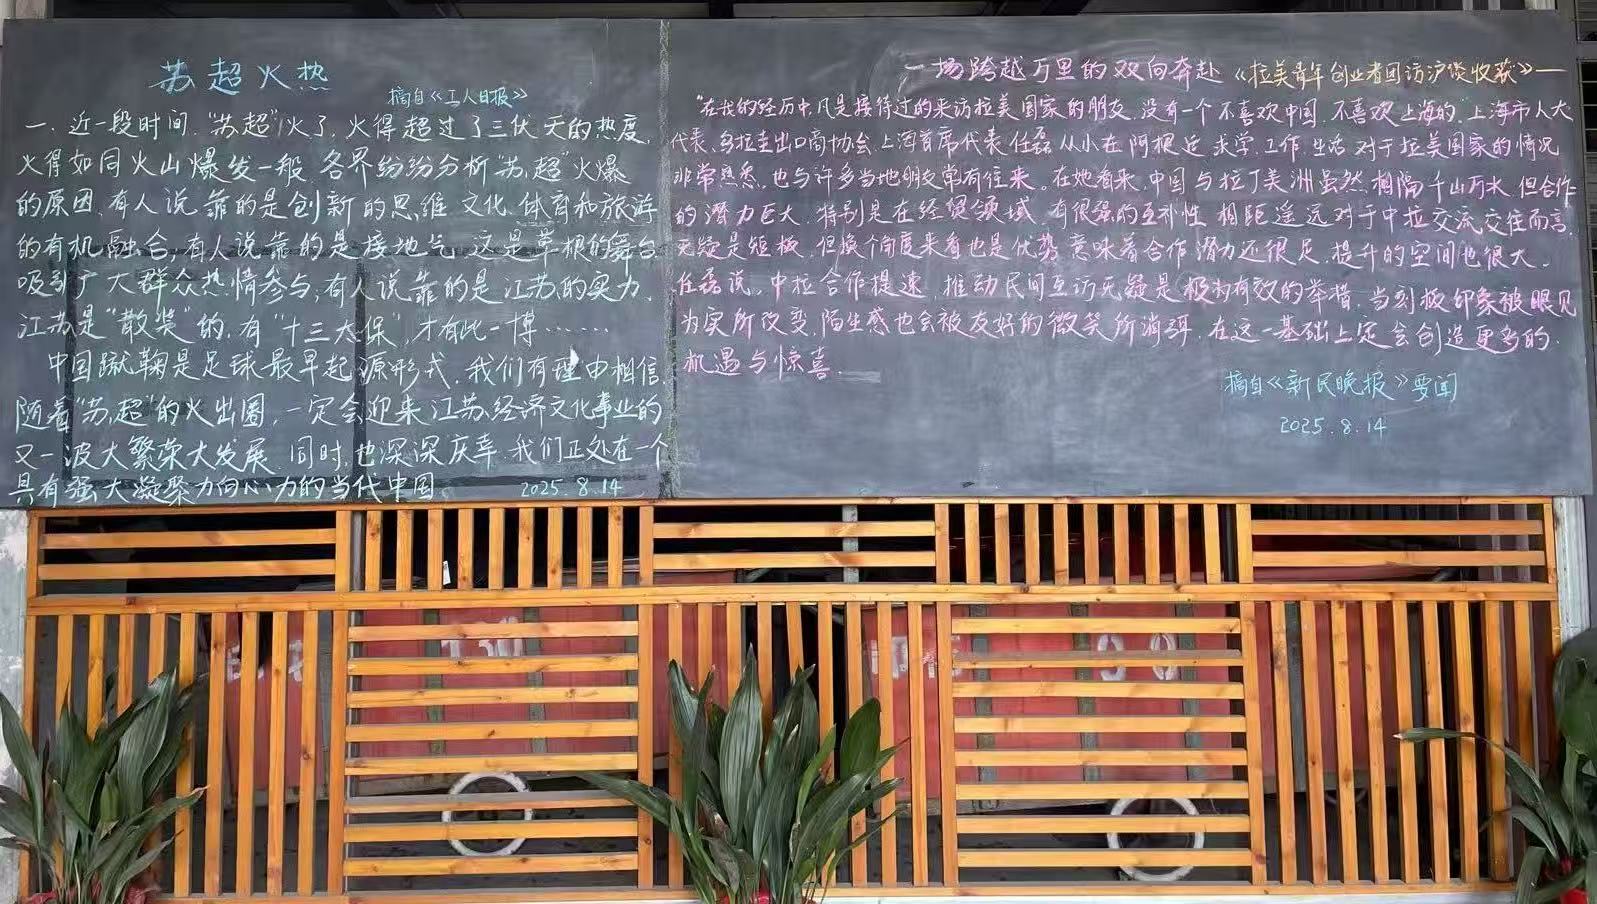 苏超火热
摘自《工人日报》
一.近一段时间."苏超"火了.火得超过了三伏天的热度,
火得如同火山爆发一般 各界纷纷分析"苏超"火爆
的原因.有人说靠的是创新的思维 文化.体育和旅游
的有机融合;有人说靠的是接地气.这是草根的舞台
吸引广大群众热情参与;有人说靠的是江苏的实力.
江苏是"散装"的.有"十三太保",才有此一博……
中国蹴鞠是足球最早起源形式.我们有理由相信.
随着"苏超"的火出圈,一定会迎来江苏经济文化事业的
又一波大繁荣大发展.同时,也深深庆幸.我们正处在一个
具有强大凝聚力向心力的当代中国。
2025.8.14
一场跨越万里的双向奔赴《拉美青年创业者团访沪谈收获》—
"在我的经历中.凡是接待过的来访拉美国家的朋友.没有一个不喜欢中国.不喜欢上海的."上海市人大
代表.乌拉圭出口商协会.上海首席代表任磊从小在阿根廷求学.工作.生活.对于拉美国家的情况
非常熟悉.也与许多当地朋友常有往来。在她看来.中国与拉丁美洲虽然相隔千山万水.但合作
的潜力巨大.特别是在经贸领域.有很强的互补性.相距遥远对于中拉交流交往而言.
无疑是短板.但换个角度来看也是优势.意味着合作潜力还很足.提升的空间也很大。
任磊说.中拉合作提速.推动民间互访无疑是极为有效的举措.当刻板印象被眼见
为实所改变.陌生感也会被友好的微笑所消弭.在这一基础上定会创造更多的.
机遇与惊喜.
摘自《新民晚报》要闻
2025.8.14